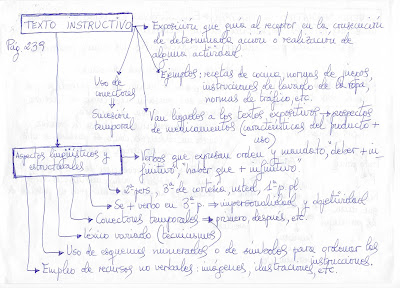 TEXTO INSTRUCTIVO
Pág 239
Exposición que guía al receptor en la consecución
de determinada acción o realización de
alguna actividad
Ejemplos: recetas de cocina, normas de juegos,
instrucciones de lavado de la ropa,
normas de tráfico, etc.
Uso de
conectores
Sucesión
temporal
Van ligados a los textos expositivos → prospectos
de medicamentos (características del producto +
uso)
Aspectos lingüísticos y
estructurales
Verbos que expresan orden y mandato, "deber + in
finitivo", "haber que + infinitivo"
2ª pers, 3ª de cortesía, usted, 1ª p. pl
Se + verbo en 3ª p. → impersonalidad y objetividad
Conectores temporales → primero, después, etc.
léxico variado (tecnicismos)
Uso de esquemas numerados o de símbolos para ordenar las
instrucciones.
Empleo de recursos no verbales: imágenes, ilustraciones, etc.